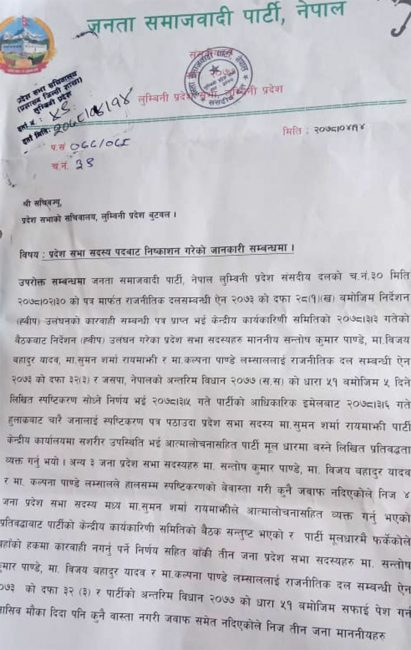 जनता समाजवादी पार्टी, नेपाल
लुम्बिनी प्रदेश सभा, लुम्बिनी प्रदेश
प्रदेश सभा सचिवालय
लुम्बिनी प्रदेश
दर्ता मिति: २०७८।०४।१४
मिति : २०७८।०४।१४
प.सं ०७८/०७९
च.नं. ३९
श्री सचिवज्यू,
प्रदेश सभाको सचिवालय, लुम्बिनी प्रदेश बुटवल ।
विषय : प्रदेश सभा सदस्य पदबाट निष्काशन गरेको जानकारी सम्बन्धमा ।
उपरोक्त सम्बन्धमा जनता समाजवादी पार्टी, नेपाल लुम्बिनी प्रदेश संसदीय दलको च.नं.३० मिति
२०७८।०२।३० को पत्र मार्फत राजनीतिक दलसम्बन्धी ऐन २०७३ को दफा २८(१)(ख) बमोजिम निर्देशन
(ह्वीप) उलंघनको कारवाही सम्बन्धी पत्र प्राप्त भई केन्द्रीय कार्यकारिणी समितिको २०७८।३।३ गतेको
बैठकबाट निर्देशन (ह्वीप) उलंघन गरेका प्रदेश सभा सदस्यहरु माननीय सन्तोष कुमार पाण्डे, मा.विजय
बहादुर यादव, मा.सुमन शर्मा रायमाझी र मा.कल्पना पाण्डे लम्साललाई राजनीतिक दल सम्बन्धी ऐन
२०७३ को दफा ३२(३) र जसपा, नेपालको अन्तरिम विधान २०७७ (स.स) को धारा ५१ बमोजिम ५ दिने
लिखित स्पष्टिकरण सोध्ने निर्णय भई २०७८।३।५ गते पार्टीको आधिकारिक इमेलबाट २०७८।३।६ गते
हुलाकबाट चारै जनालाई स्पष्टिकरण पत्र पठाउदा प्रदेश सभा सदस्य मा.सुमन शर्मा रायमाझी पार्टी
केन्द्रीय कार्यालयमा सशरीर उपस्थिति भई आत्मालोचनासहित पार्टी मूल धारमा बस्ने लिखित प्रतिवद्धता
व्यक्त गर्नु भयो । अन्य ३ जना प्रदेश सभा सदस्यहरु मा. सन्तोष कुमार पाण्डे, मा. विजय बहादुर यादव
र मा. कल्पना पाण्डे लम्सालले हालसम्म स्पष्टिकरणको बेवास्ता गरी कुनै जवाफ नदिएकोले निज ४
जना प्रदेश सभा सदस्य मध्य मा.सुमन शर्मा रायमाझीले आत्मालोचनासहित व्यक्त गर्नु भएको
प्रतिवद्धाबाट पार्टीको केन्द्रीय कार्यकारिणी समितिको बैठक सन्तुष्ट भएको र पार्टी मूलधारमै फर्केकोले
हाँको हकमा कारवाही नगर्नु पर्ने निर्णय सहित बाँकी तीन जना प्रदेश सभा सदस्यहरु मा. सन्तोष
कुमार पाण्डे, मा. विजय बहादुर यादव र मा.कल्पना पाण्डे लम्साललाई राजनीतिक दल सम्बन्धी ऐन
२०७३ को दफा ३२ (३) र पार्टीको अन्तरिम विधान २०७७ को धारा ५१ बमोजिम सफाई पेश गर्न
नासिव मौका दिदा पनि कुनै वास्ता नगरी जवाफ समेत नदिएकोले निज तीन जना माननीयहरु